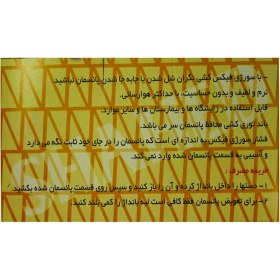 - با سورژی فیکس کشی نگران شل شدن یا جابه جا شدن پانسمان نباشید.
نرم و لطیف و بدون حساسیت، با حداکثر هوارسانی.
قابل استفاده در زایشگاه ها و بیمارستان ها و سایر موارد.
باند توری کشی محافظ پانسمان سر می باشد.
فشار سورژی فیکس به اندازه ای است که پانسمان را در جای خود ثابت نگه می دارد
و آسیبی به قسمت پانسمان شده وارد نمی کند.
مصرف:
۱- دستها را داخل بانداژ کرده و آن را باز کنید و سپس روی قسمت پانسمان شده بکشید.
۲- برای تعویض پانسمان فقط کافی است لبه بانداژ را کمی بلند کنید